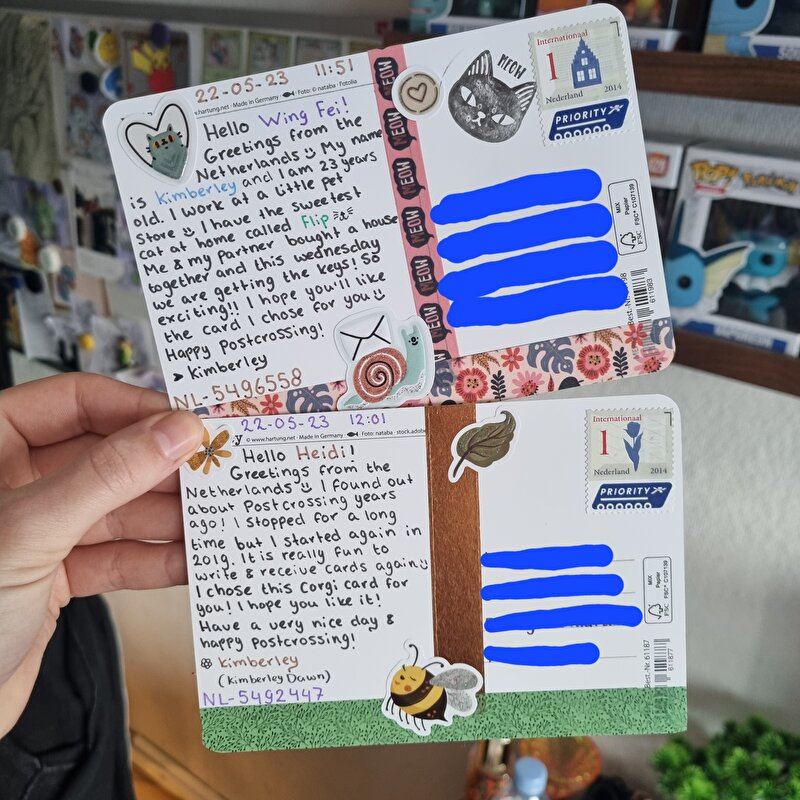 22-05-23 11:51
www.hartung.net · Made in Germany · Foto: © nataba · Fotolia
Hello Wing Fei!
Greetings from the
Netherlands My name
is Kimberley and I am 23 years
old. I work at a little pet
store I have the sweetest
cat at home called Flip
Me & my Partner bought a house
together and this wednesday
we are getting the keys! So
exciting!! I hope you'll like
the card I chose for you
Happy Postcrossing!
Kimberley
NL-5496558
MEOW
MEOW
MEOW
MEOW
MEOW
MEOW
MEOW
Internationaal
1
Nederland 2014
PRIORITY
MIX
Papier
FSC® C107139
FSC
611983
22-05-23 12:01
© www.hartung.net · Made in Germany · Foto: nataba · stock.adobe
Hello Heidi!
Greetings from the
Netherlands I found out
about Postcrossing years
ago! I stopped for a long
time but I started again in
2019. It is really fun to
write & receive cards again
I chose this Corgi card for
you! I hope you like it!
Have a very nice day &
happy Postcrossing!
Kimberley
(Kimberley Dawn)
NL-5492447
Internationaal
1
Nederland 2014
PRIORITY
MIX
Papier
FSC® C107139
FSC
Best.-Nr. 61187
61 877
POP!
Pokémon